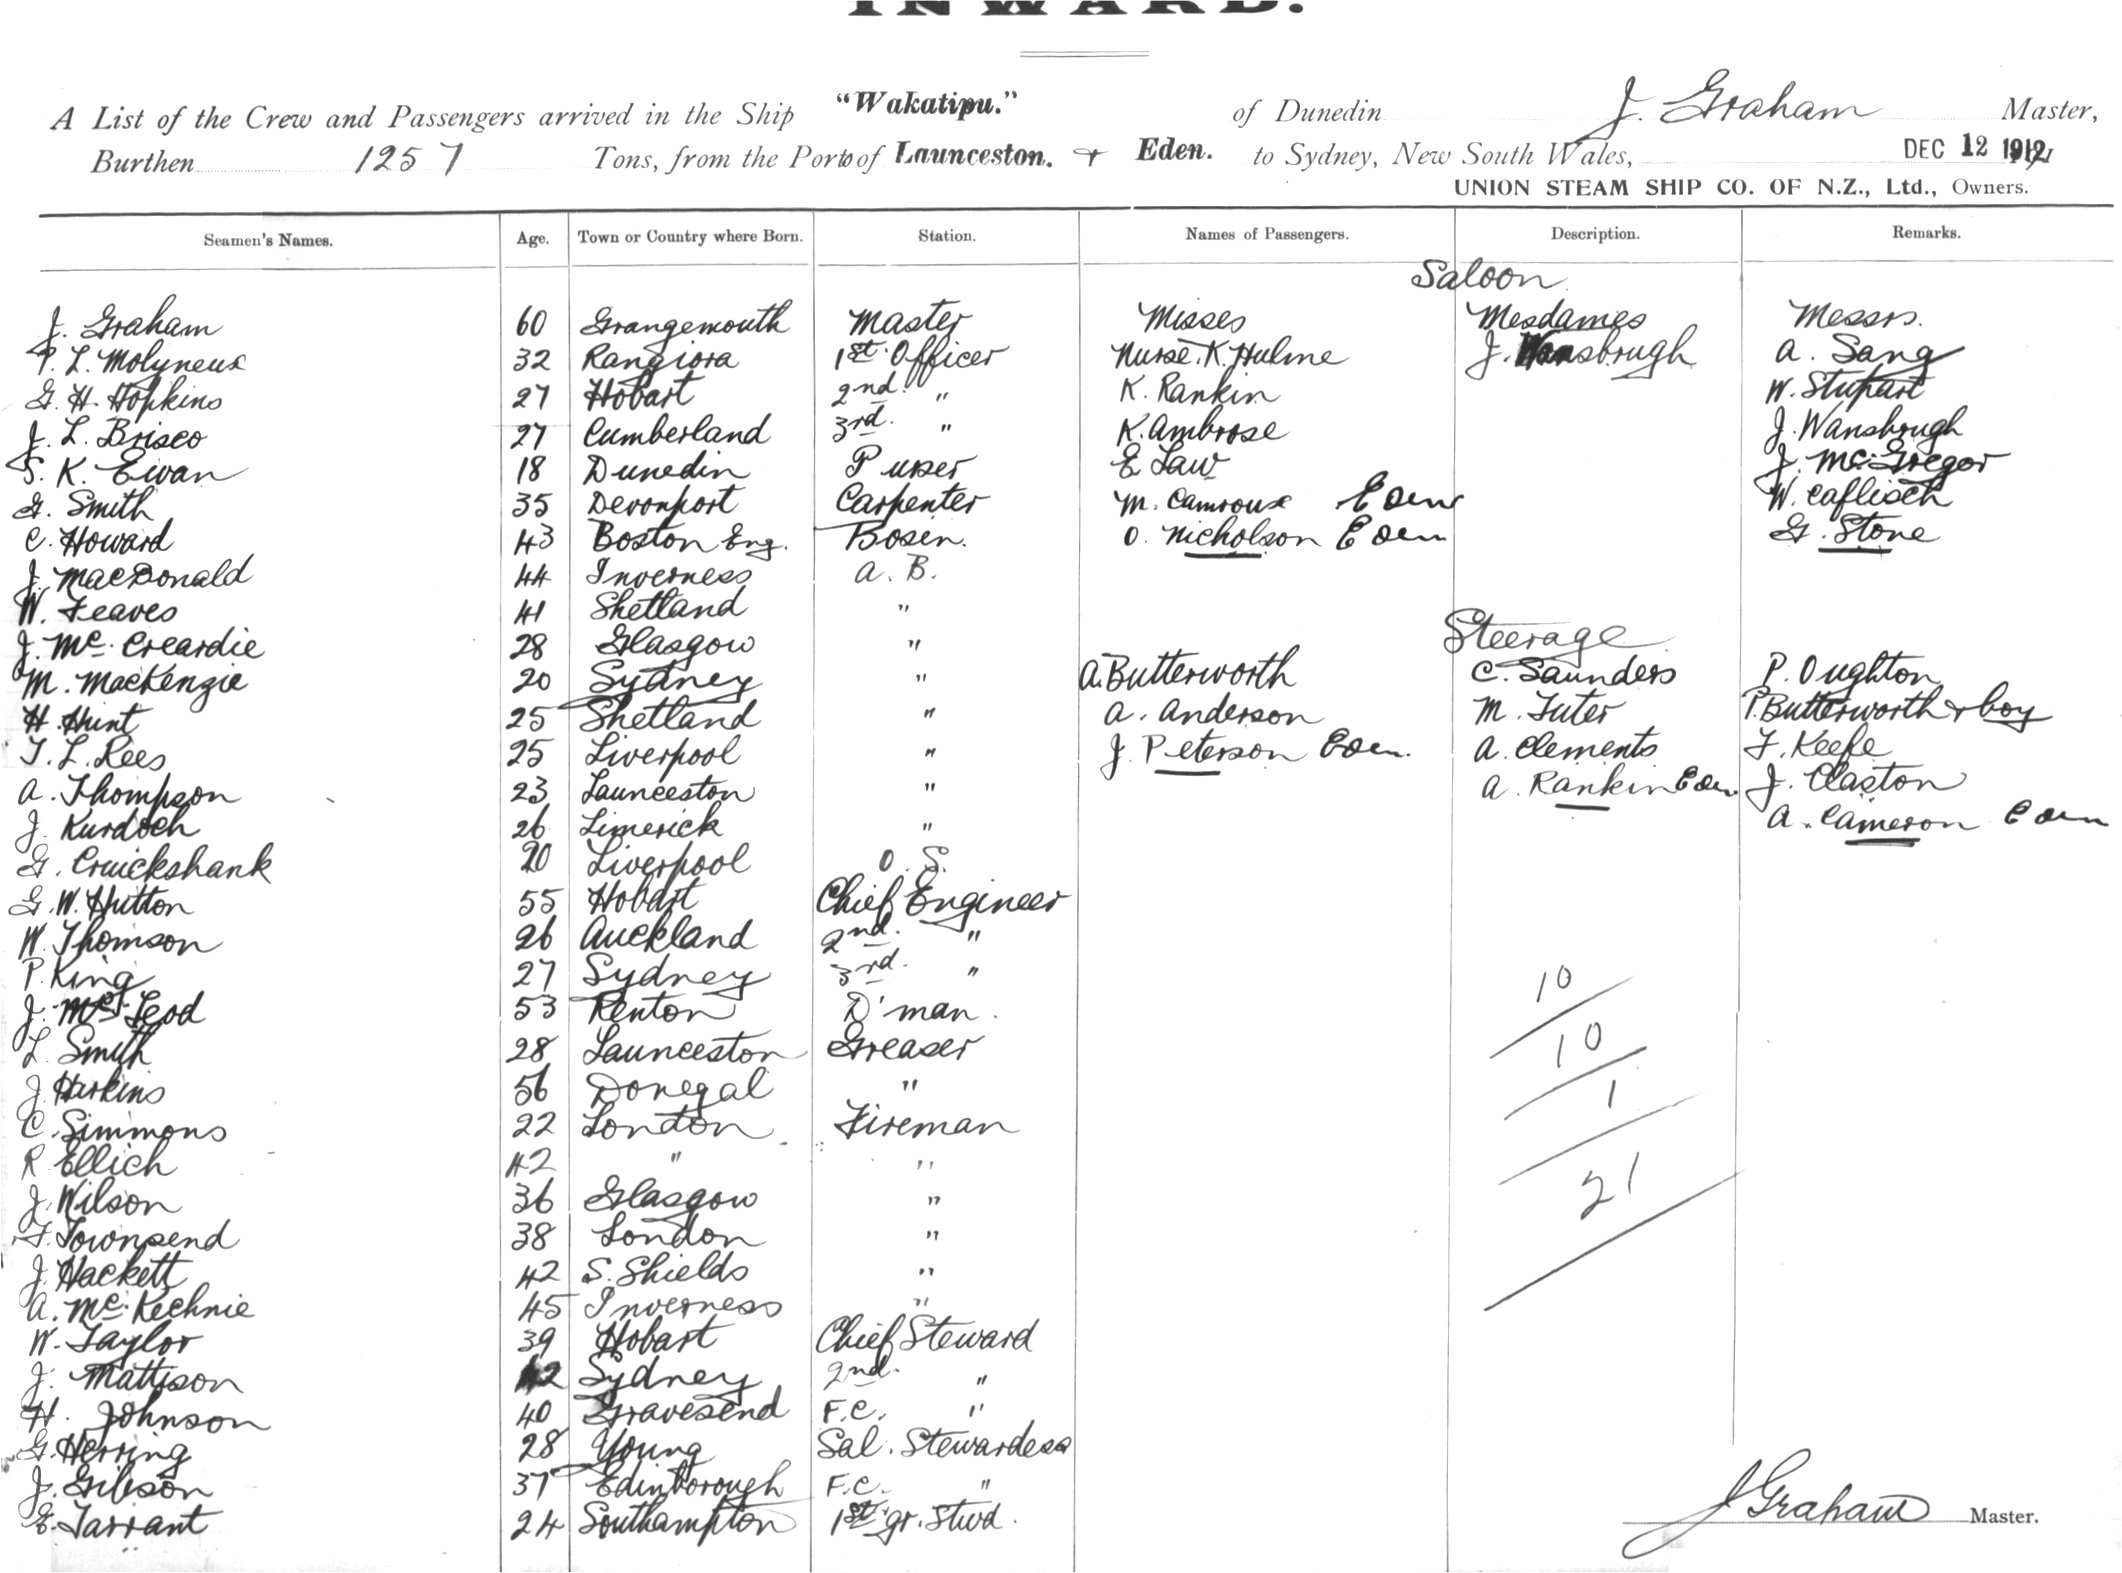 INWARD.
A List of the Crew and Passengers arrived in the Ship "Wakatipu." of Dunedin J. Graham Master,
Burthen 1257 Tons, from the Ports of Launceston. + Eden. to Sydney, New South Wales, DEC 12 1912
UNION STEAM SHIP CO. OF N.Z., Ltd., Owners.
Seamen's Names. Age. Town or Country where Born. Station. Names of Passengers. Description. Remarks.
Saloon
J. Graham 60 Grangemouth Master Misses Mesdames Messrs.
P. L. Molyneux 32 Rangiora 1st Officer Nurse. K. Hulme J. Wansbrough A. Sang
G. H. Hopkins 27 Hobart 2nd. " K. Rankin W. Stupart
J. L. Brisco 27 Cumberland 3rd. " K. Ambrose J. Wansbrough
S. K. Ewan 18 Dunedin Purser E Law J. McGregor
G. Smith 35 Devonport Carpenter M. Camroux Eden W. Caflisch
C. Howard 43 Boston Eng. Bosen. O. Nicholson Eden G. Stone
J. MacDonald 44 Inverness A. B.
W. Feaves 41 Shetland "
J. Mc. Creardie 28 Glasgow " Steerage
M. MacKenzie 20 Sydney " A. Butterworth C. Saunders P. Oughton
H. Hunt 25 Shetland " A. Anderson M. Tuter P. Butterworth + boy
T. L. Rees 25 Liverpool " J. Peterson Eden. A. Clements F. Keefe
A. Thompson 23 Launceston " A. Rankin Eden J. Claxton
J. Kurdoch 26 Limerick " A. Cameron Eden
G. Cruickshank 20 Liverpool O. S.
G. W. Hutton 55 Hobart Chief Engineer
W. Thomson 26 Auckland 2nd. "
P. King 27 Sydney 3rd. " 10
J. McLeod 53 Renton D'man.
L. Smith 28 Launceston Greaser 10
J. Harkins 56 Donegal " 1
C. Simmons 22 London Fireman
R Ellich 42 " "
J. Wilson 36 Glasgow " 21
F. Townsend 38 London "
J. Hackett 42 S. Shields "
A. Mc. Kechnie 45 Inverness "
W. Taylor 39 Hobart Chief Steward
J. Mattison 42 Sydney 2nd. "
H. Johnson 40 Gravesend F.C. "
G. Herring 28 Young Sal. Stewardess
J. Gibson 37 Edinborough F.C. "
E. Tarrant 24 Southampton 1st gr. Stwd.
J Graham Master.